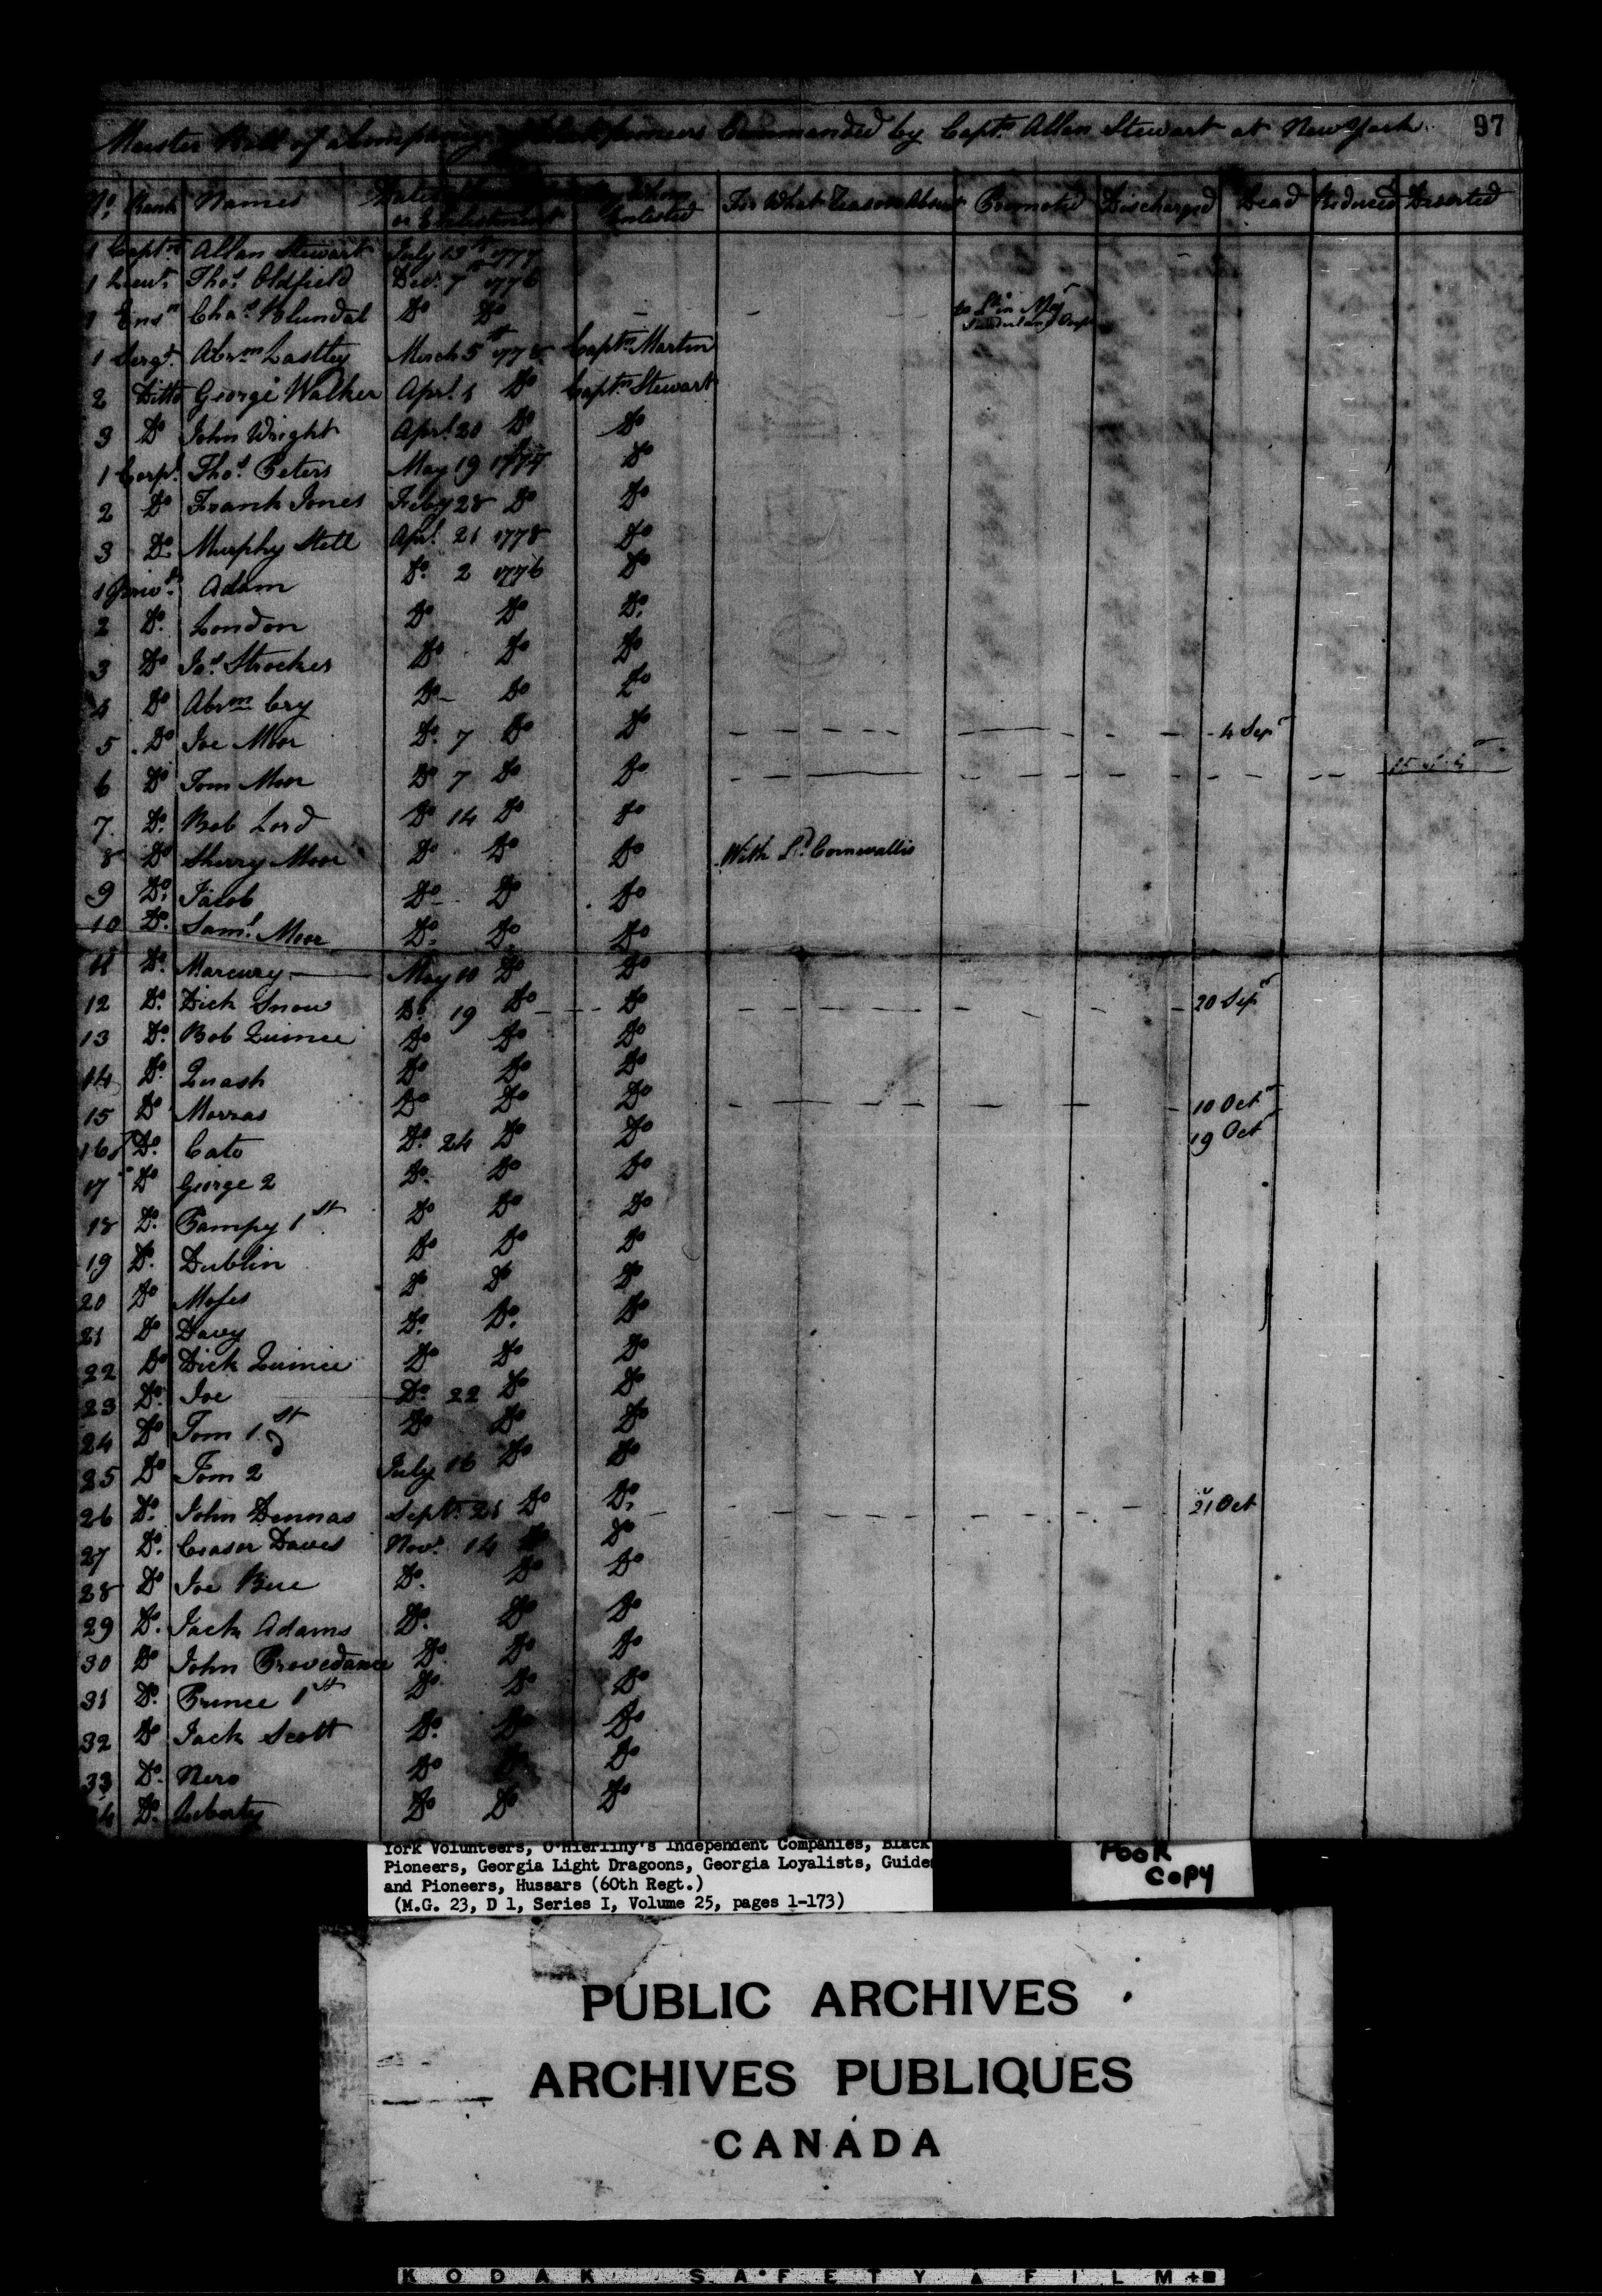 97
Muster Roll of a Company Pioneers Commanded by Capt. Allan Stewart at New York
No. Rank Names Dates or Enlistment Enlisted For What Reason Absent Promoted Discharged Dead Reduced Deserted
1 Captn. Allan Stewart July 13th 1777
1 Lieut. Thos. Oldfield Decr. 7th 1776
1 Ensn. Chas. Blundal Do Do
1 Sergt. Abrm. Lastley March 5th 1778 Captn. Martin
2 Ditto George Walker Aprl. 1 Do Captn. Stewart
3 Do John Wright Aprl. 20 Do Do
1 Corpl. Thos. Peters May 19 1777 Do
2 Do Frank Jones Feby 28 Do Do
3 Do. Murphy Still Aprl. 21 1778 Do
1 Privt. Adam Do. 2 1776 Do
2 Do. London Do Do Do.
3 Do Jas. Strocker Do Do Do
4 Do Abrm. Cry Do Do Do
5 Do Joe Moor Do. 7 Do Do 4 Sepr
6 Do Tom Moor Do 7 Do Do
7 Do. Bob Lord Do 14 Do Do
8 Do Sherry Moor Do Do Do With Ld. Cornwallis
9 Do. Jacob Do Do Do
10 Do. Saml. Moor Do. Do. Do
11 Do. Marcury May 10 Do Do
12 Do. Dick Snow Do 19 Do Do 20 Sepr
13 Do. Bob Quince Do Do Do
14 Do. Quash Do Do Do
15 Do Morras Do Do Do 10 Octr
16 Do. Cato Do. 24 Do Do 19 Oct
17 Do George 2 Do. Do Do
18 Do. Pampy 1st Do Do Do
19 Do. Dublin Do Do Do
20 Do Moses Do Do Do
21 Do Davy Do. Do. Do
22 Do Dick Quince Do Do Do
23 Do. Joe Do. 22 Do Do
24 Do Tom 1st Do Do Do
25 Do Tom 2d July 16 Do Do
26 Do. John Dennas Septr. 21 Do Do. 21 Oct
27 Do. Ceasor Daves Novr. 14 Do Do
28 Do Joe Do. Do Do
29 Do. Jack Adams Do. Do Do
30 Do John Provedance Do. Do Do
31 Do. Prince 1st Do Do Do
32 Do Jack Scott Do. Do Do
33 Do. Nero Do Do Do
34 Do. Liberty Do Do Do
York Volunteers, O'Hierliny's Independent Companies, Black
Pioneers, Georgia Light Dragoons, Georgia Loyalists, Guides
and Pioneers, Hussars (60th Regt.)
(M.G. 23, D 1, Series I, Volume 25, pages 1-173)
POOR
COPY
PUBLIC ARCHIVES
ARCHIVES PUBLIQUES
CANADA
KODAK SAFETY FILM